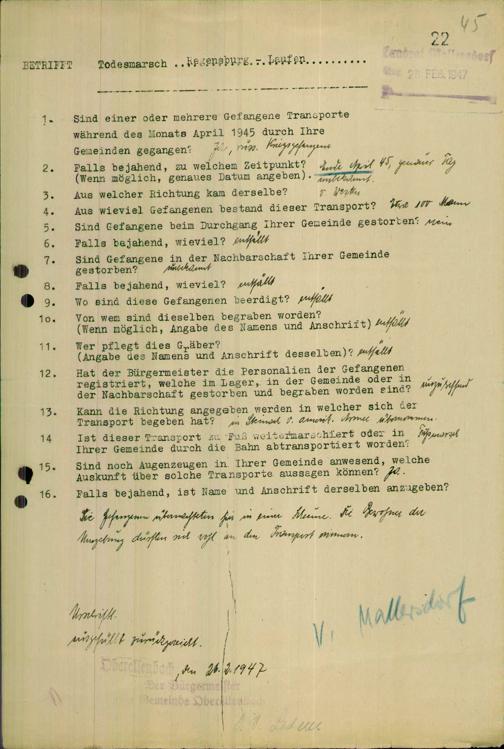 45
22
Landrat Mallersdorf
28. FEB. 1947
BETRIFFT Todesmarsch ..Regensburg.-.Laufen..........
1. Sind einer oder mehrere Gefangene Transporte
während des Monats April 1945 durch Ihre
Gemeinden gegangen? Ja, russ. Kriegsgefangene
2. Falls bejahend, zu welchem Zeitpunkt? Ende April 45, genauer Tag
(Wenn möglich, genaues Datum angeben). unbekannt.
3. Aus welcher Richtung kam derselbe?
4. Aus wieviel Gefangenen bestand dieser Transport? 100 Mann
5. Sind Gefangene beim Durchgang Ihrer Gemeinde gestorben? nein
6. Falls bejahend, wieviel? entfällt
7. Sind Gefangene in der Nachbarschaft Ihrer Gemeinde
gestorben? unbekannt
8. Falls bejahend, wieviel? entfällt
9. Wo sind diese Gefangenen beerdigt? entfällt
10. Von wem sind dieselben begraben worden?
(Wenn möglich, Angabe des Namens und Anschrift) entfällt
11. Wer pflegt dies Gräber?
(Angabe des Namens und Anschrift desselben)? entfällt
12. Hat der Bürgermeister die Personalien der Gefangenen
registriert, welche im Lager, in der Gemeinde oder in
der Nachbarschaft gestorben und begraben worden sind?
13. Kann die Richtung angegeben werden in welcher sich der
Transport begeben hat? in v. amerik. Armee übernommen.
14 Ist dieser Transport zu Fuß weitermarschiert oder in
Ihrer Gemeinde durch die Bahn abtransportiert worden?
15. Sind noch Augenzeugen in Ihrer Gemeinde anwesend, welche
Auskunft über solche Transporte aussagen können? Ja.
16. Falls bejahend, ist Name und Anschrift derselben anzugeben?
Die Gefangenen übernachteten hier in einer Scheune. Die Bewohner der
Umgebung dürften sich wohl an den Transport erinnern.
Urschriftl.
ausgefüllt zurückgereicht.
V. Mallersdorf
Oberellenbach, den 26.2.1947
Der Bürgermeister
Gemeinde Oberellenbach